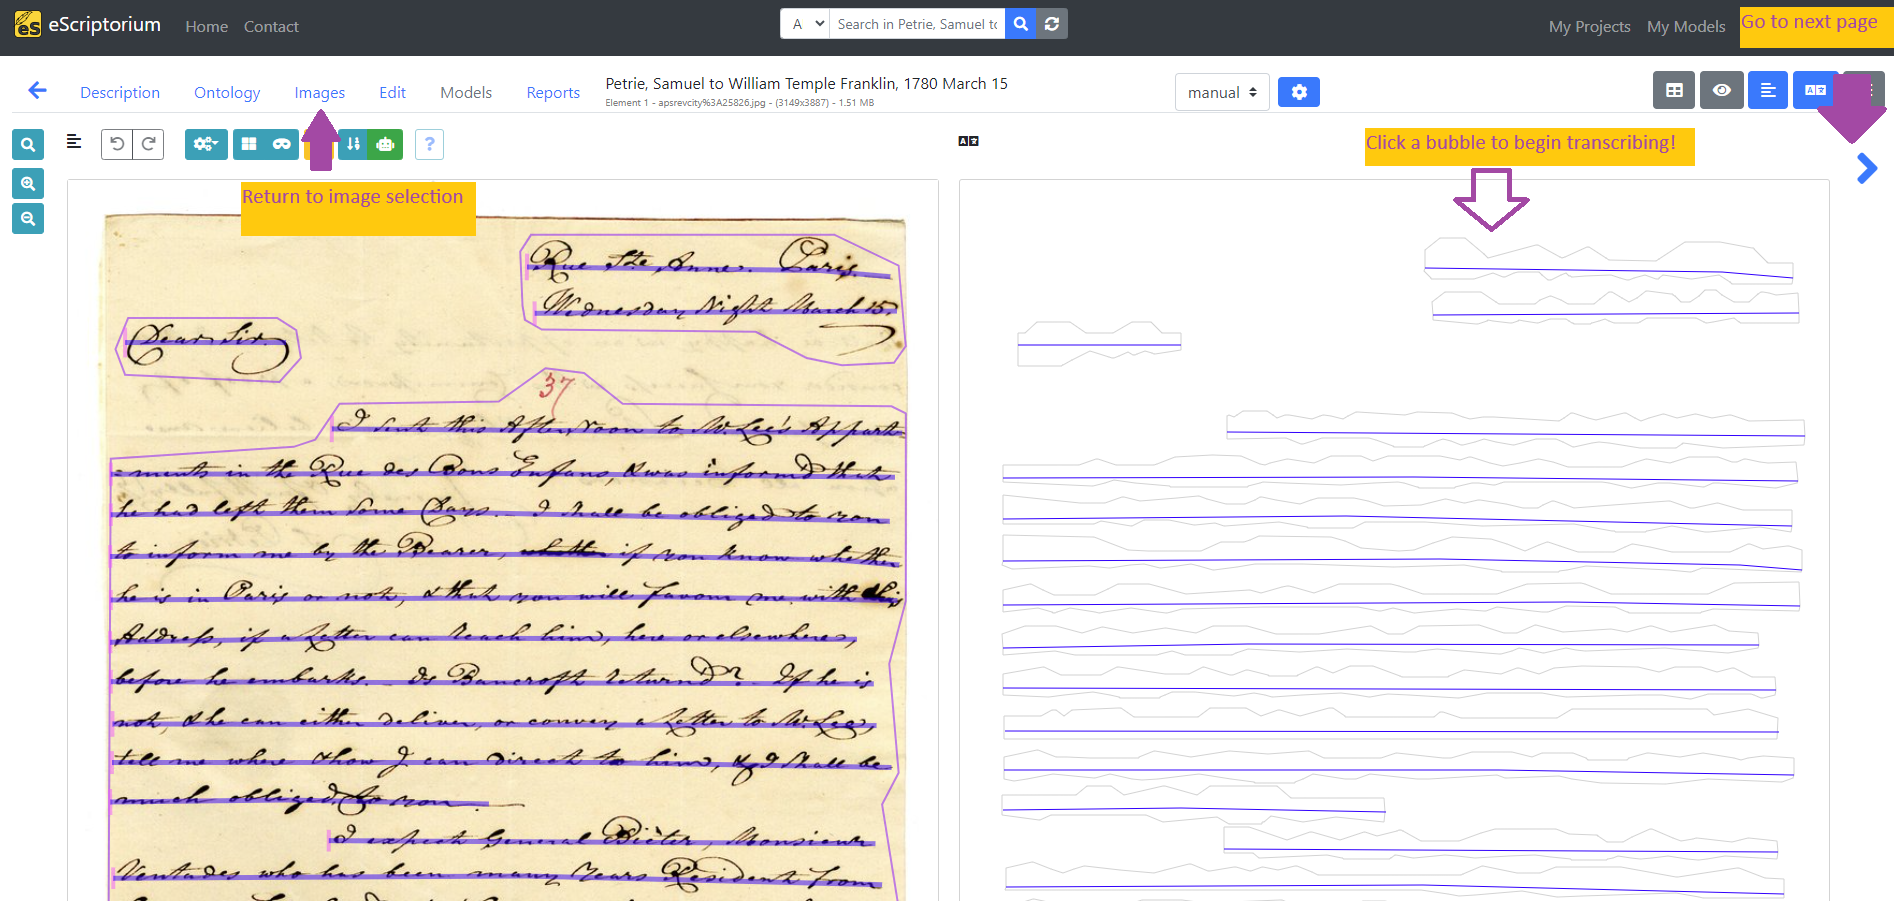 eScriptorium
Home
Contact
A
Search in Petrie, Samuel to
My Projects
My Models
Go to next page
Description
Ontology
Images
Edit
Models
Reports
Petrie, Samuel to William Temple Franklin, 1780 March 15
Element 1 - apsrevcity%3A25826.jpg - (3149x3887) - 1.51 MB
manual
Click a bubble to begin transcribing!
Return to image selection
Rue Ste Anne. Paris.
Wednesday Night March 15.
Dear Sir.
37
I sent this After,noon to Mr. Lee's Appart=
=ments in the Rue des Bons Enfans, & was inform'd that
he had left them some Days. _ I shall be obliged to you
to inform me by the Bearer, if you know whether
he is in Paris or not, & that you will favour me with his
Address, if a Letter can reach him, here or elsewhere,
before he embarks. _ Is Bancroft return'd? _ If he is
not, & he can either deliver, or convey a Letter to Mr. Lee,
tell me where & how I can direct to him, & I shall be
much obliged to you. _
I expect General Monsieur
Ventades who has been many Years Resident from